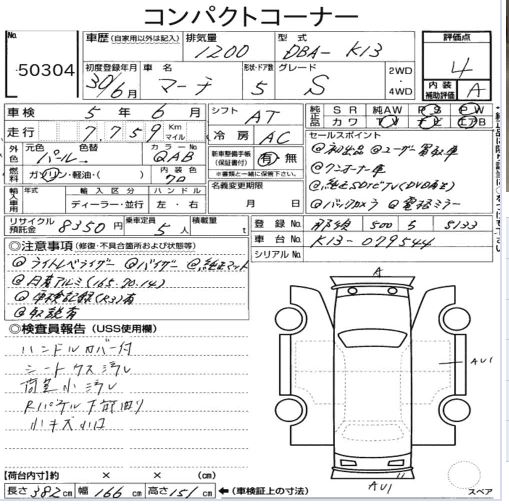 コンパクトコーナー
No.
50304
車歴 (自家用以外は記入) 排気量 1200 型式 DBA-K13
評価点 4
初度登録年月 30年6月 車名 マーチ 形状・ドア数 5 グレード S 2WD・4WD
内装補助評価 A
車検 5年 6月 シフト AT
純正品 SR 純AW PS PW
カワ TV ナビ エアB
走行 7,759 Km マイル 冷房 AC
セールスポイント
外色 元色 パール 色替 カラーNo. QAB
新車整備手帳(保証書付) 有・無
※書類と一緒に保管下さい。
燃料 ガソリン・軽油・( ) 内装色 クロ
名義変更期限 月 日
輸入車用 年式 輸入区分 ディーラー・並行 ハンドル 左・右
@ワンオーナー車
@純正SDナビTV(DVD再生)
@バックカメラ @電格ミラー
リサイクル預託金 8350円 乗車定員 5人 積載量 t
登録No. 那須 500 5 5133
車台No. K13-079544
シリアルNo.
◎注意事項 (修復・不具合箇所および状態等)
@ライトレベライザー @バイザー @純正マット
@日産アルミ(165.70.14)
@車検記録(R3)有
@取説有
◎検査員報告 (USS使用欄)
ハンドルカバー付
シートクス汚レ
荷室小汚レ
小キズ小凹
A
AU1
AU1
スペア
【荷台内寸】約 × × (cm)
長さ 382cm 幅 166cm 高さ 151cm ←(車検証上の寸法)